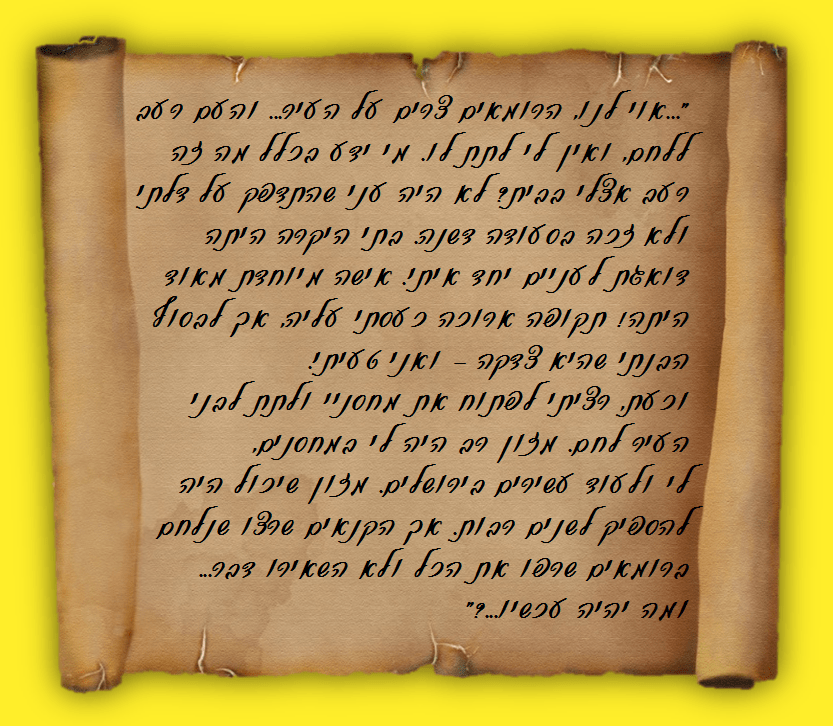 "...אוי לנו, הרומאים צרים על העיר... והעם רעב
ללחם, ואין לי לתת לו. מי ידע בכלל מה זה
רעב אצלי בבית? לא היה עני שהתדפק על דלתי
ולא זכה בסעודה דשנה. בתי היקרה היתה
דואגת לעניים יחד איתי. אישה מיוחדת מאוד
היתה! תקופה ארוכה כעסתי עליה, אך לבסוף
הבנתי שהיא צדקה – ואני טעיתי!
וכעת, רציתי לפתוח את מחסניי ולתת לבני
העיר לחם. מזון רב היה לי במחסנים,
לי ולעוד עשירים בירושלים. מזון שיכול היה
להספיק לשנים רבות. אך הקנאים שרצו שנלחם
ברומאים שרפו את הכל ולא השאירו דבר...
ומה יהיה עכשיו...?"